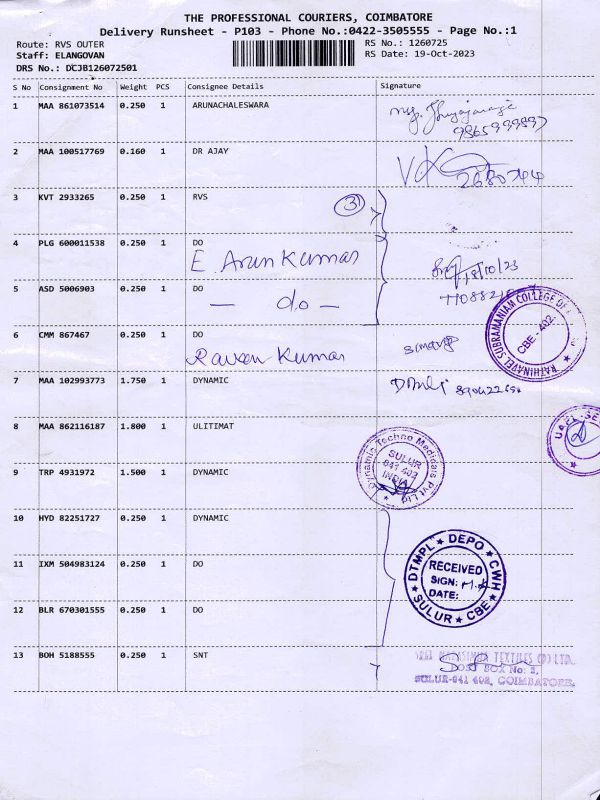 THE PROFESSIONAL COURIERS, COIMBATORE
Delivery Runsheet - P103 - Phone No.:0422-3505555 - Page No.:1
Route: RVS OUTER RS No.: 1260725
Staff: ELANGOVAN RS Date: 19-Oct-2023
DRS No.: DCJB126072501
S No Consignment No Weight PCS Consignee Details Signature
1 MAA 861073514 0.250 1 ARUNACHALESWARA
2 MAA 100517769 0.160 1 DR AJAY
3 KVT 2933265 0.250 1 RVS
3
4 PLG 600011538 0.250 1 DO
E. Arun Kumar
18/10/23
5 ASD 5006903 0.250 1 DO
— do —
RATHINAVEL SUBRAMANIAM COLLEGE OF
CBE - 402.
6 CMM 867467 0.250 1 DO
Raveen Kumar
7 MAA 102993773 1.750 1 DYNAMIC
8 MAA 862116187 1.800 1 ULITIMAT
Dynamic Techno Medicals Pvt Ltd
SULUR
641 402
INDIA
9 TRP 4931972 1.500 1 DYNAMIC
10 HYD 82251727 0.250 1 DYNAMIC
11 IXM 504983124 0.250 1 DO
DTMPL ★ DEPO ★ CWH
RECEIVED
SIGN:
DATE:
SULUR ★ CBE
12 BLR 670301555 0.250 1 DO
13 BOH 5188555 0.250 1 SNT
TEXTILES (P) LTD.
POST BOX No: 2,
SULUR-641 402, COIMBATORE.